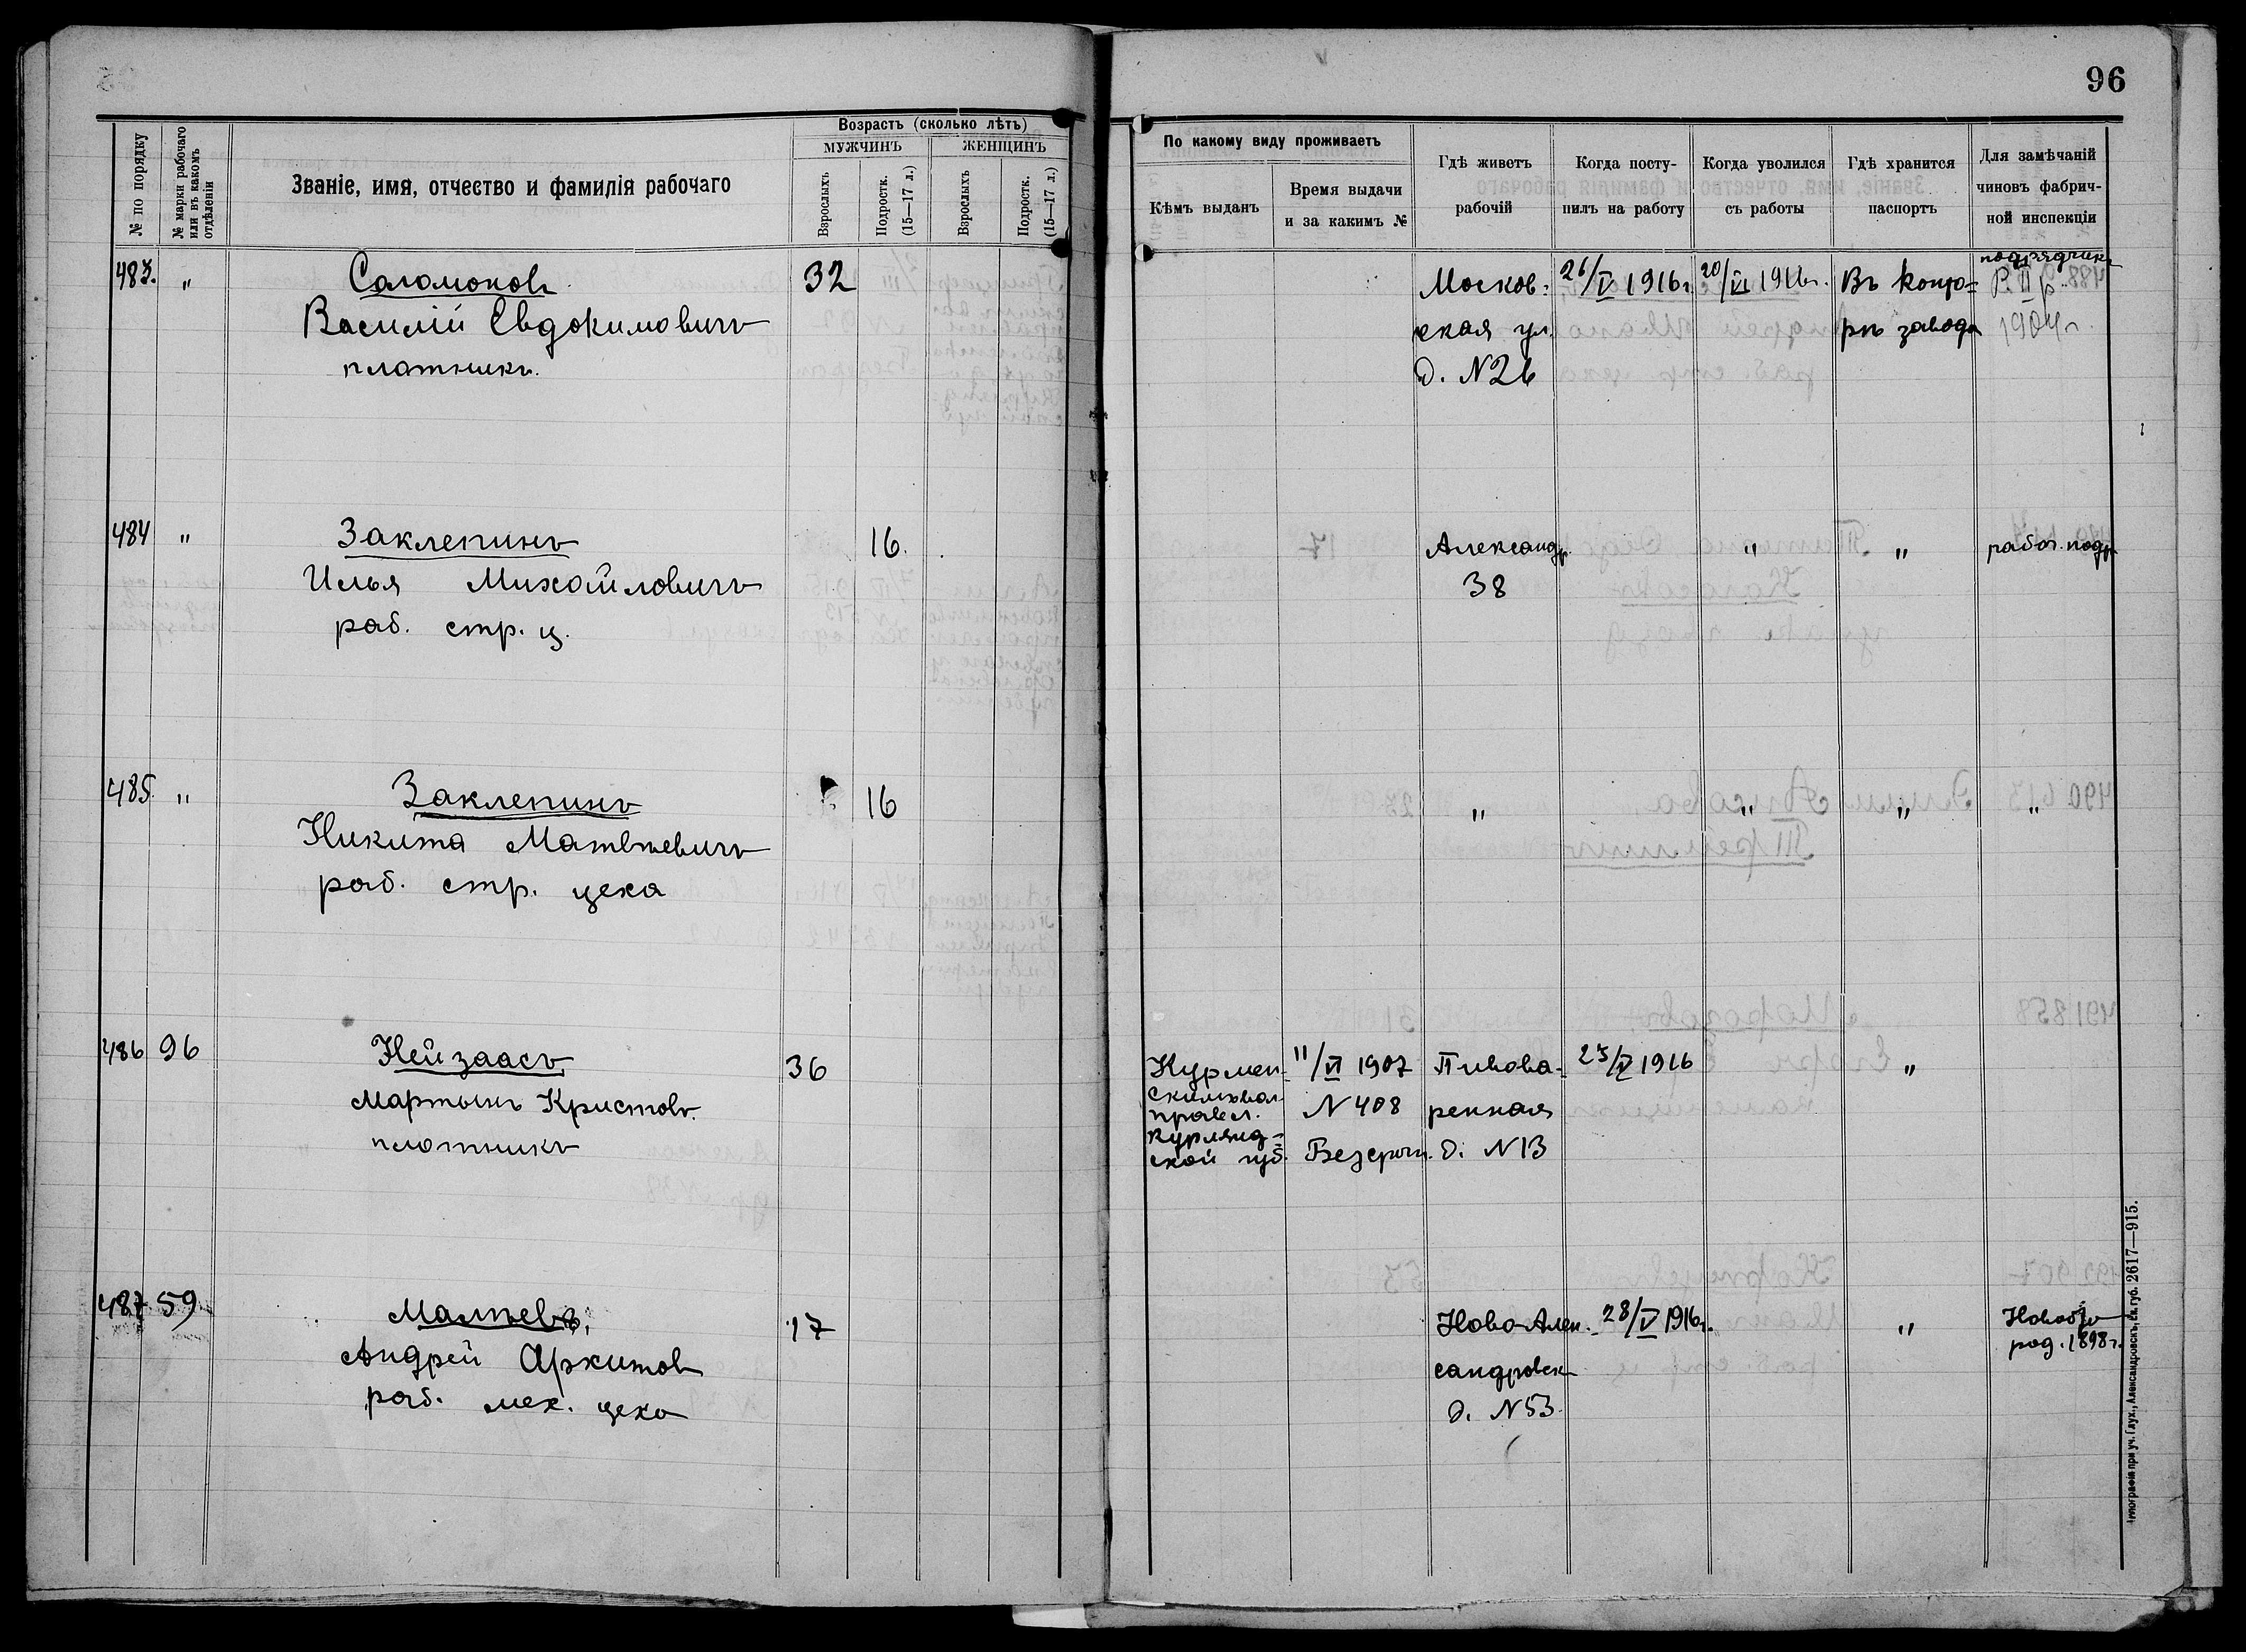 96
№ по порядку
№ марки рабочаго или въ какомъ отдѣленіи
Званіе, имя, отчество и фамилія рабочаго
Возрастъ (сколько лѣтъ)
МУЖЧИНЪ
ЖЕНЩИНЪ
Взрослыхъ
Подростк. (15—17 л.)
Взрослыхъ
Подростк. (15—17 л.)
По какому виду проживаетъ
Кѣмъ выданъ
Время выдачи и за какимъ №
Гдѣ живетъ рабочій
Когда поступилъ на работу
Когда уволился съ работы
Гдѣ хранится паспортъ
Для замѣчаній чиновъ фабричной инспекціи
483. " Саломоновъ 32
Василій Евдокимовичъ
плотникъ.
Москов-
ская ул.
д. N 26
26/V 1916 г.
20/VI 1916 г.
Въ конто-
рѣ завода
подрядчикъ
Р. II р.
1904 г.
484 " Заклепинъ 16.
Илья Михайловичъ
раб. стр. ц.
Александр.
38
" "
рабоч. подр.
485. " Заклепинъ 16
Никита Матвѣевичъ
раб. стр. цеха
" " " "
486 96 Нейзаасъ 36
Мартынъ Кристовъ.
плотникъ
Курмен-
правл.
Курлянд-
ской губ.
11/VI 1907
N 408
Безсрочн.
Пивова-
ренная
д. N 13
25/V 1916
"
487 59 Малѣевъ, 17
Андрей Архиповъ
раб. мех. цеха
Ново-Алек-
сандровск
д. N 53.
28/V 1916 г.
"
Новобр
род. 1898 г.
Типографія при уч. Глух., Александровскъ, Ек. губ. 2617—915.